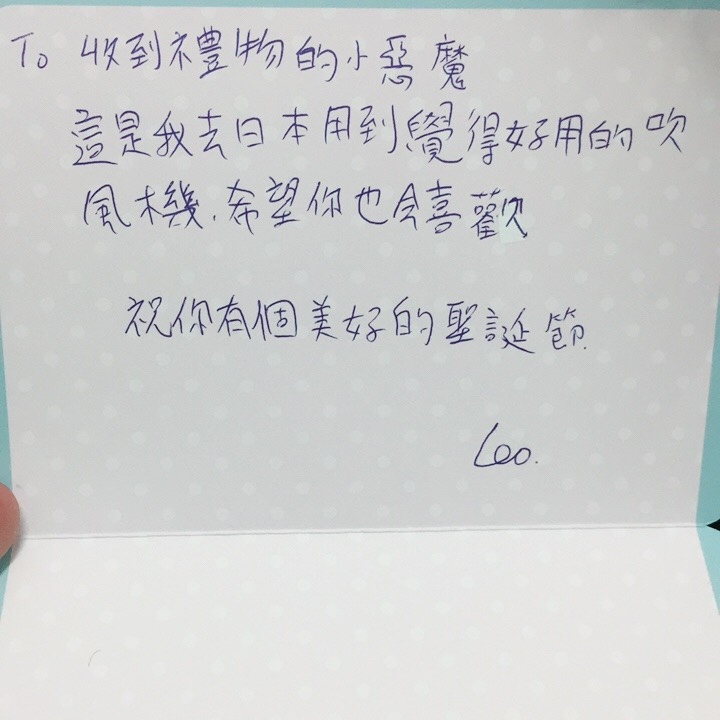 To 收到禮物的小惡魔
這是我去日本用到覺得好用的吹
風機.希望你也会喜歡
祝你有個美好的聖誕節.
Leo.